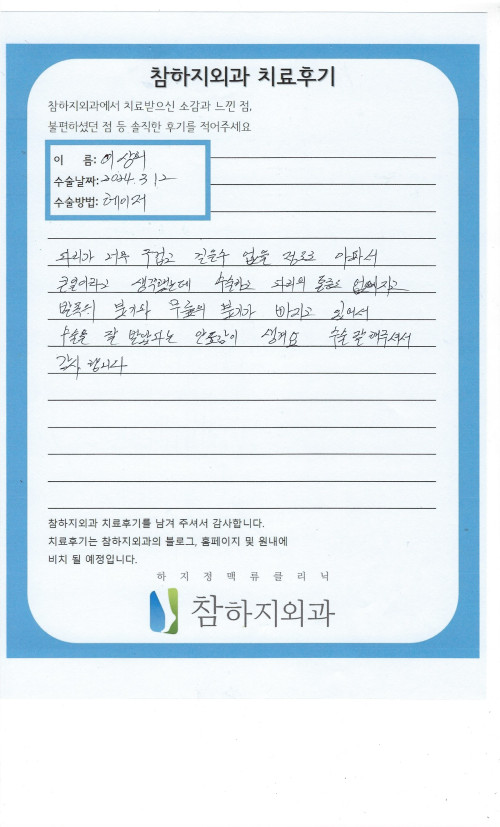 참하지외과 치료후기
참하지외과에서 치료받으신 소감과 느낀 점,
불편하셨던 점 등 솔직한 후기를 적어주세요
이 름: 이상의
수술날짜: 2024.3.12
수술방법: 레이저
다리가 너무 무겁고 걸을수 없을 정도로 아파서
큰일이라고 생각했는데 수술하고 다리의 통증도 없어지고
발목의 붓기와 무릎의 붓기가 빠지고 있어서
수술을 잘 받았다는 안도감이 생겨요 수술 잘 해주셔서
감사 합니다
참하지외과 치료후기를 남겨 주셔서 감사합니다.
치료후기는 참하지외과의 블로그, 홈페이지 및 원내에
비치 될 예정입니다.
하지정맥류클리닉
참하지외과